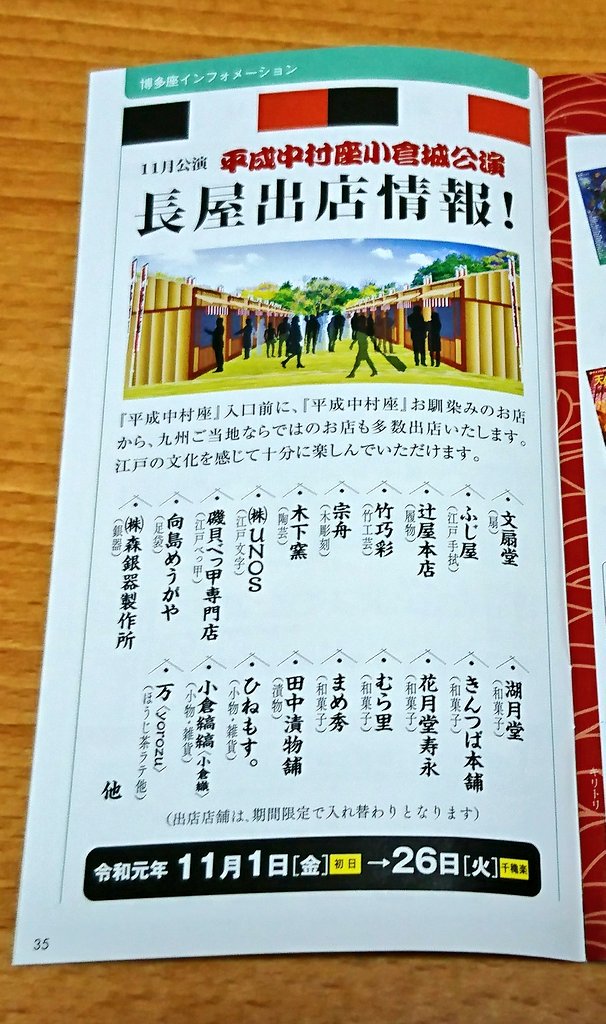 博多座インフォメーション
11月公演 平成中村座小倉城公演
長屋出店情報!
『平成中村座』入口前に、『平成中村座』お馴染みのお店
から、九州ご当地ならではのお店も多数出店いたします。
江戸の文化を感じて十分に楽しんでいただけます。
文扇堂
(扇)
ふじ屋
(江戸手拭)
辻屋本店
(履物)
竹巧彩
(竹工芸)
宗舟
(木彫刻)
木下窯
(陶芸)
㈱UNOS
(江戸文字)
磯貝べっ甲専門店
(江戸べっ甲)
向島めうがや
(足袋)
㈱森銀器製作所
(銀器)
湖月堂
(和菓子)
きんつば本舗
(和菓子)
花月堂寿永
(和菓子)
むら里
(和菓子)
まめ秀
(和菓子)
田中漬物舗
(漬物)
ひねもす。
(小物・雑貨)
小倉縞縞〈小倉織〉
(小物・雑貨)
万〈yorozu〉
(ほうじ茶ラテ他)
他
(出店店舗は、期間限定で入れ替わりとなります)
令和元年 11月1日[金]初日→26日[火]千穐楽
35
キリトリ